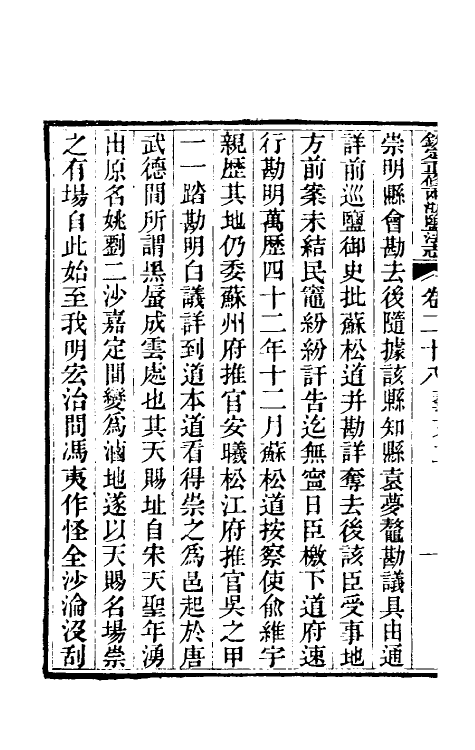 欽定重修兩浙鹽法志 卷二十八 藝文二 一
崇明縣會勘去後隨據該縣知縣袁夢鼇勘議具由通
詳前巡鹽御史批蘇松道并勘詳奪去後該臣受事地
方前案未結民竈紛紛訐告迄無寧日臣檄下道府速
行勘明萬歷四十二年十二月蘇松道按察使俞維宇
親歷其地仍委蘇州府推官安曦松江府推官吳之甲
一一踏勘明白議詳到道本道看得崇之為邑起於唐
武德間所謂黑蜃成雲處也其天賜址自宋天聖年湧
出原名姚劉二沙嘉定間變為滷地遂以天賜名場崇
之有場自此始至我明宏治間馮夷作怪全沙淪沒刮